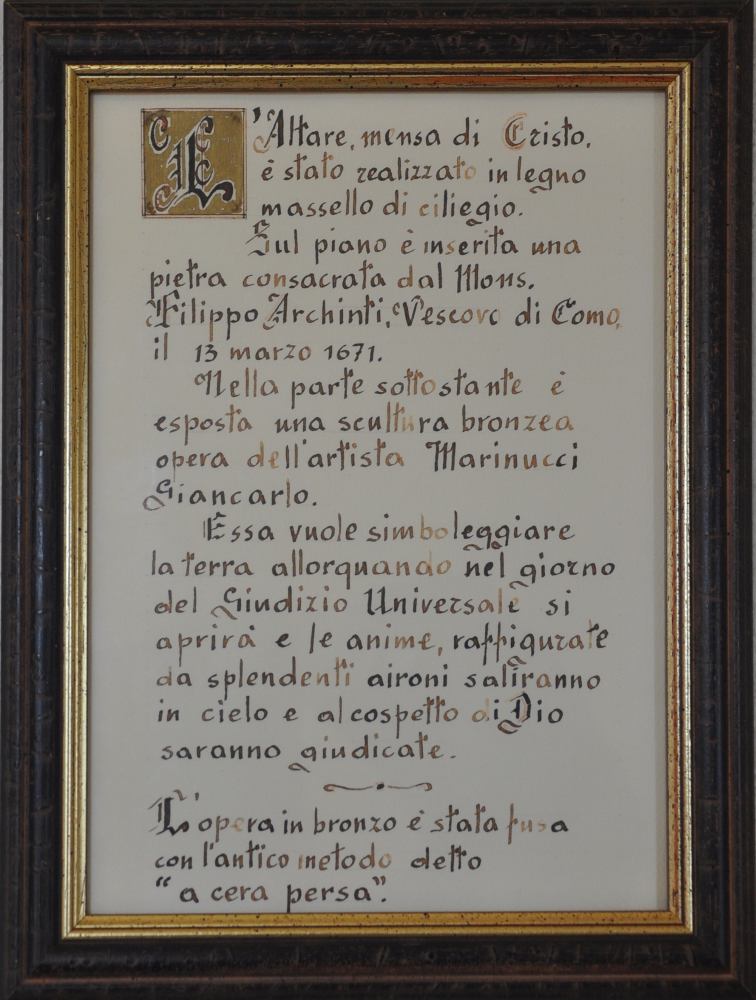 L'Altare, mensa di Cristo,
è stato realizzato in legno
massello di ciliegio.
Sul piano è inserita una
pietra consacrata dal Mons.
Filippo Archinti, Vescovo di Como,
il 13 marzo 1671.
Nella parte sottostante è
esposta una scultura bronzea
opera dell'artista Marinucci
Giancarlo.
Essa vuole simboleggiare
la terra allorquando nel giorno
del Giudizio Universale si
aprirà e le anime, raffigurate
da splendenti aironi saliranno
in cielo e al cospetto di Dio
saranno giudicate.
L'opera in bronzo è stata fusa
con l'antico metodo detto
“a cera persa”.